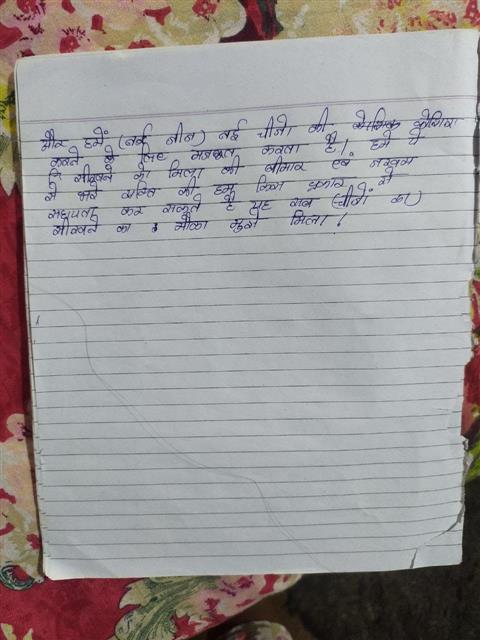 और हमें (नई चीज) नई चीजो की कोशिश
करने के लिए मजबूत करता है। हमे ये
सीखने को मिला की बीमार एवं जखम
से भरे व्यक्ति की हम किस प्रकार से
सहायता कर सकते है यह सब (चीजों का)
सीखने का मौका मुझे मिला।